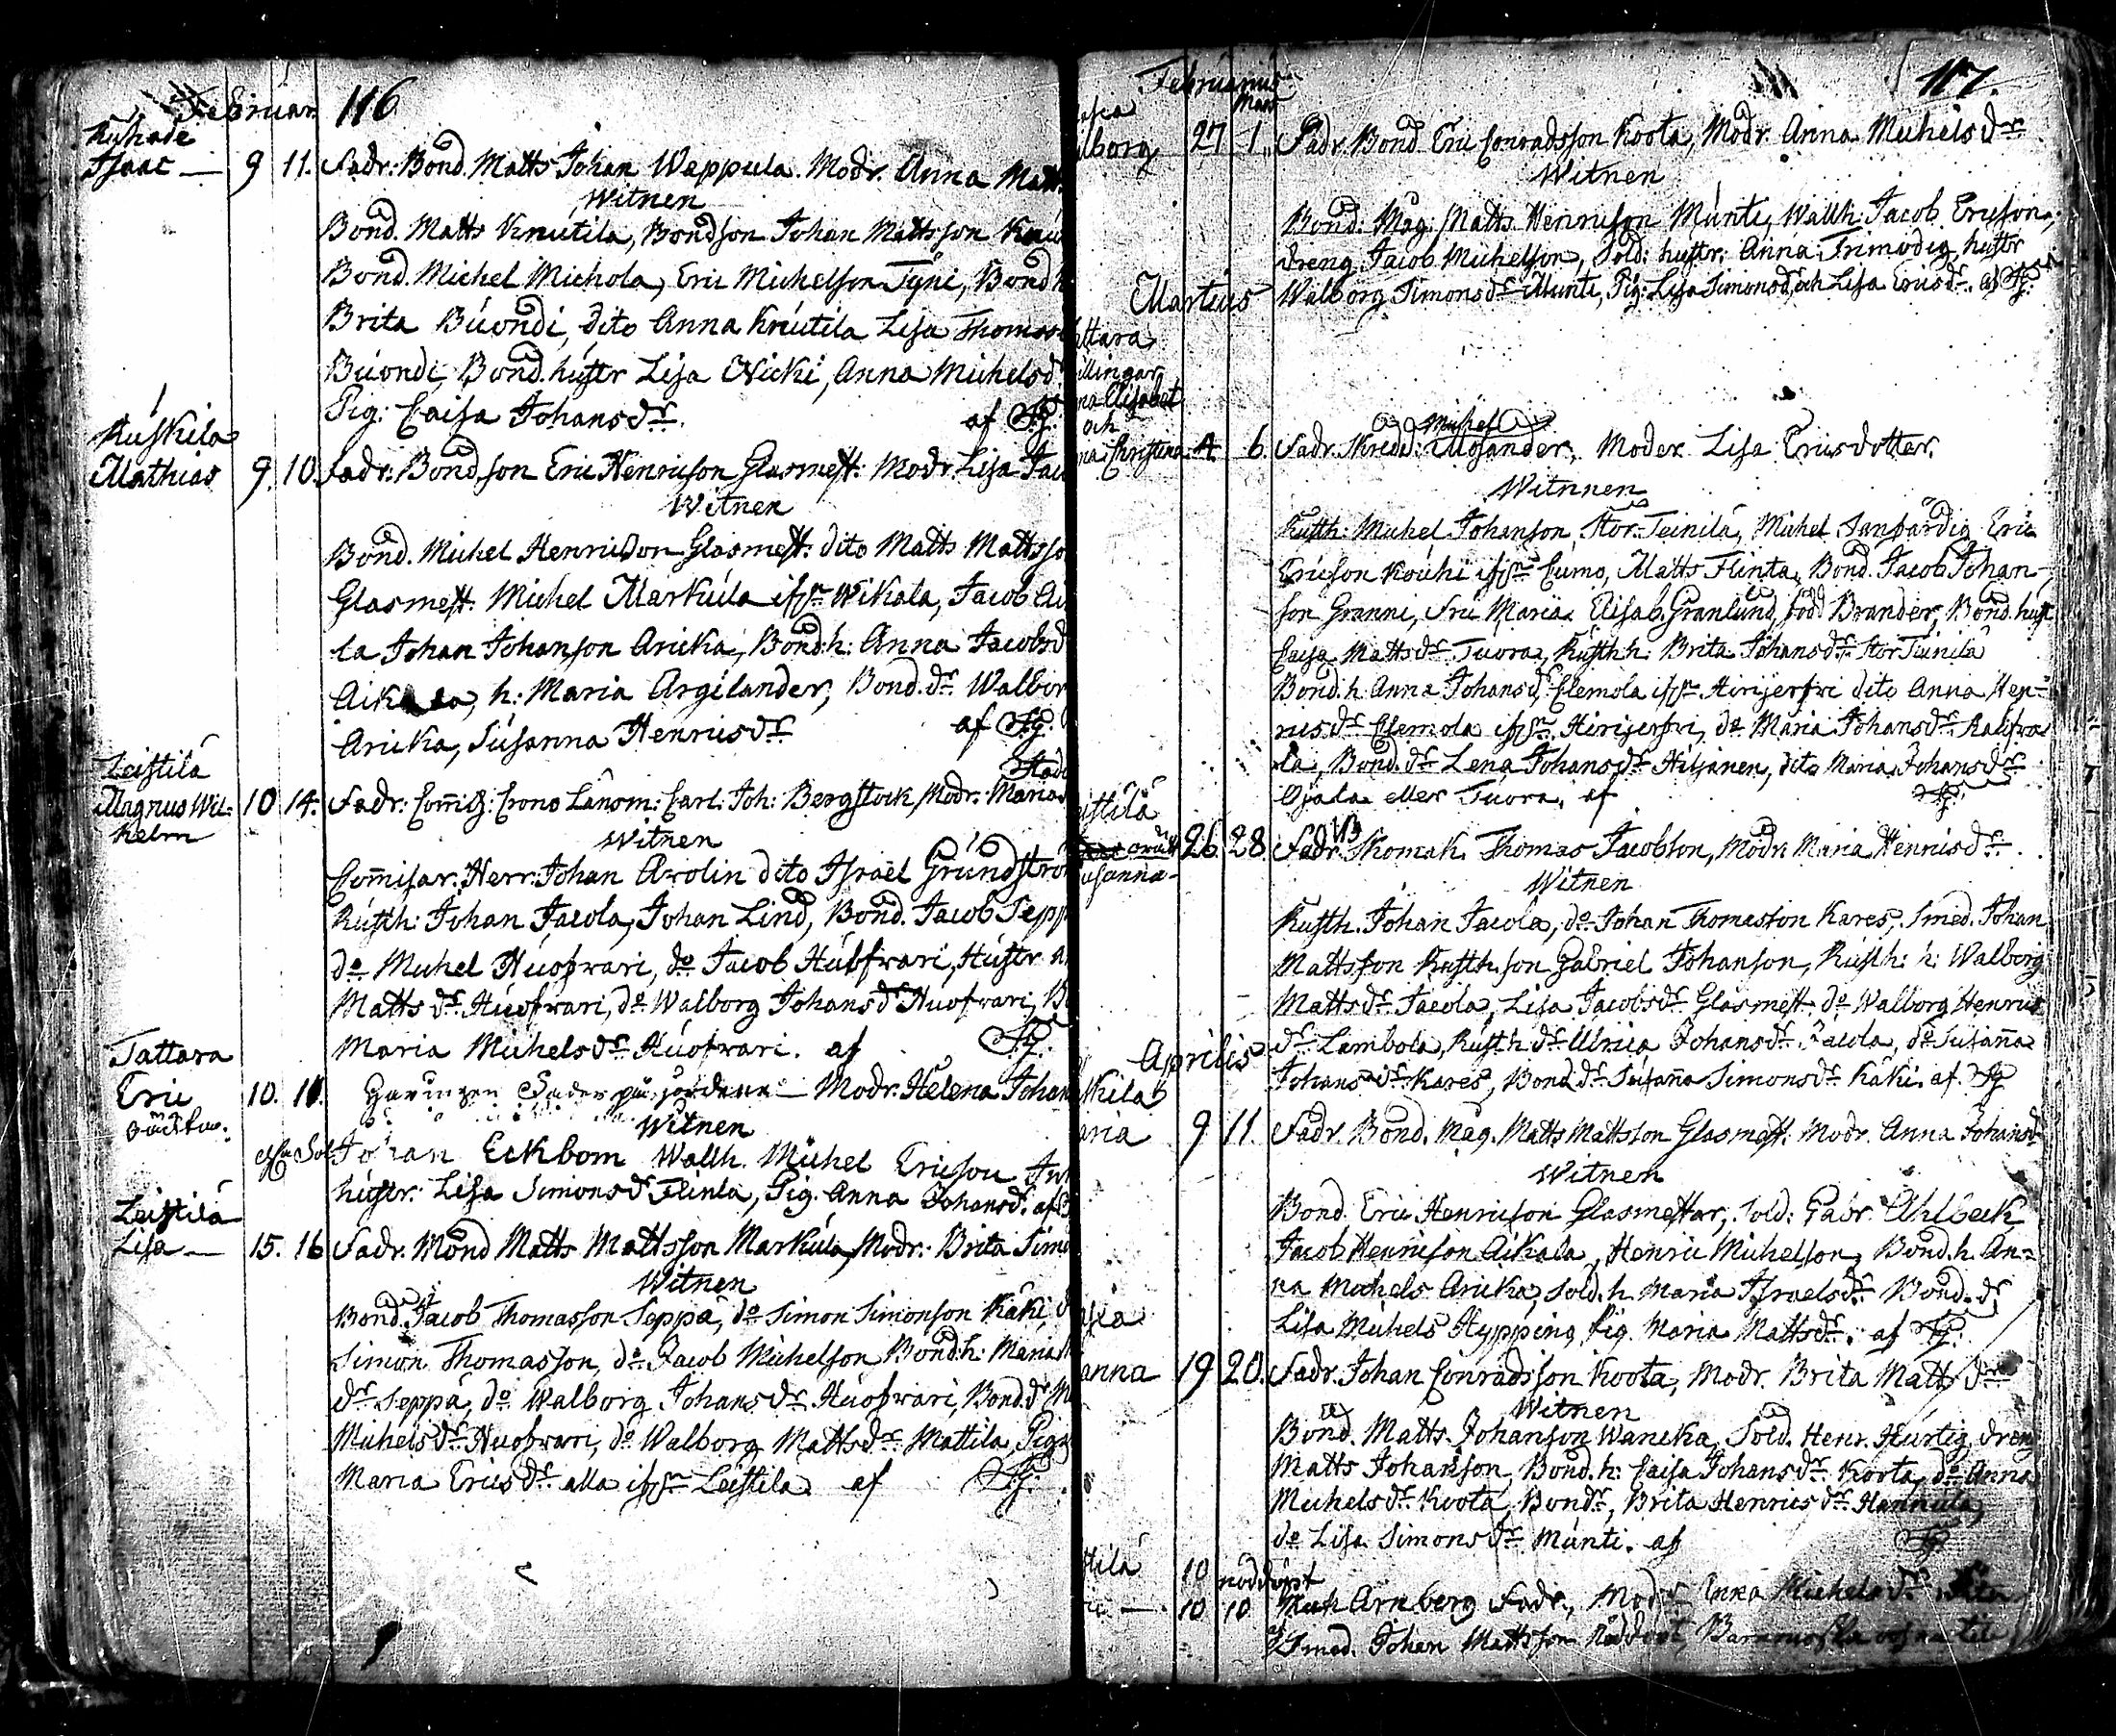 Februar 116
Isaac — 9 11. Fadr. Bond. Matts Johan Wappula. Modr. Anna
Witnen
Bond. Matts Knutila, Bondson Johan Mattsson
Bond. Michel Michola, Eric Michelson Tyni, Bond
Brita Buondi, dito Anna Knutila Lisa
Buondi, Bond. hustr Lisa Nicki, Anna Michelsd
Pig: Caisa Johansdr. af
Ruskila
Mathias 9. 10. Fadr: Bondson Eric Henricson Glasmest: Modr. Lisa
Witnen
Bond. Michel Henricson Glasmest: dito Matts
Glasmest. Michel Markula ifrn Wikala, Jacob
la Johan Johanson Aricka, Bond:h: Anna Jacobsd
h: Maria Argilander, Bond. dr. Walbor
Aricka, Susanna Henricsdr. af
Leistila
Magnus Wil= 10 14. Fadr: Crono Länsm: Carl. Joh: Bergstock, Modr. Maria
helm
Witnen
Herr. Johan Arolin dito Israël
Rusth: Johan Jacola, Johan Lind, Bond. Jacob
do Michel Huofvari, do Jacob Huofvari, Hustr
Matts dr. Huofvari, do Walborg Johansdr Huofvari,
Maria Michelsdr. Huofvari. af
Tattara
Eric 10. Fader på jordena — Modr. Helena
Witnen
Johan Eckbom Wallh. Michel Ericson
hustr: Lisa Simonsd Flinta, Pig. Anna Johansd. af
Leistila
Lisa — 15. 16 Fadr. Matts Mattsson Markula, Modr: Brita
Witnen
Bond. Jacob Thomasson Seppä, do Simon Simonson Käki,
Simon Thomasson, do Jacob Michelson Bond:h: Maria
dr Seppä, do Walborg Johansdr. Huofvari, Bond. dr
Michelsdr. Huofvari, do Walborg Mattsdr. Mattila,
Maria Ericsdr. alla ifrn Leistila. af
Februarius 117.
Mars
lborg 27 1. Fadr. Bond Eric Conradsson Koota, Modr. Anna Michelsdr
Witnen
Bond: Måg: Matts Henricson Munti, Wallh: Jacob Ericson,
dreng Jacob Michelson, Sold: hustr: Anna Trimodig, hustr
Martius Walborg Simonsdr Munti, Pig: Lisa Simonsd, och Lisa Ericsdr. af
ttara
llingar
na Elisabet
och
na Christina. 4. 6. Fadr. Skredd: Michel Mosander, Moder Lisa Ericsdotter.
Witnnen
Rusth: Michel Johanson, Stor-Teinilä, Michel Eric
Ericson Kouhi ifrn Cumo, Matts Flinta, Bond. Jacob Johan-
son Granni, Fru Maria Elisab. Granlund, född Brander, Bond. hust
Caisa Mattsdr. Tuora, Rusth:h: Brita Johansdr. Stor Teinilä
Bond. h. Anna Johansd, Clemola ifrn dito Anna Hen=
ricsdr. Clemola ifrn do Maria Johansdr.
la, Bond. dr Lena Johansdr Hiljanen, dito Maria Johansdr
Ojala eller Tuora. af
istila
usanna 26 28 Fadr. Thomas Jacobson, Modr. Maria Henricsdr.
Witnen
Rusth. Johan Jacola, do Johan Thomasson Kares, Smed. Johan
Mattsson Rusth. son Gabriel Johanson, Rusth: h: Walborg
Mattsdr. Jacola, Lisa Jacobsdr. Glasmest. do Walborg Henrics
dr. Lambola, Rusth dr Ulrica Johansdr. Jacola, do Susanna
Aprilis
Johansdr. Kares, Bond. dr. Susanna Simonsdr. Käki. af
skila
aria 9 11. Fadr. Bond. Måg. Matts Mattsson Glasmest. Modr. Anna Johansdr
Witnen
Bond Eric Henricson Glasmestar, Sold: Gabr. Ahlbeck
Jacob Henricson Aikala, Henric Michelsson, Bond. h. An=
na Michels Aricka, Sold. h. Maria Israelsdr. Bond. dr
Lisa Michels Hypping, Pig. Maria Mattsdr. af
anna 19 20. Fadr. Johan Conradsson Koota, Modr. Brita Mattsdr
Witnen
Bond. Matts Johanson Waneka, Sold. Henr. Hurtig, dreng
Matts Johanson, Bond. h: Caisa Johansdr. Koota, do Anna
Michelsdr. Koota, Brita Henricsdr. Hannula,
do Lisa Simonsdr Munti. af
10 nöddöpt
10 10 Mich Arnberg Fadr., Modr Anna Michelsdr
Smed. Johan Mattsson